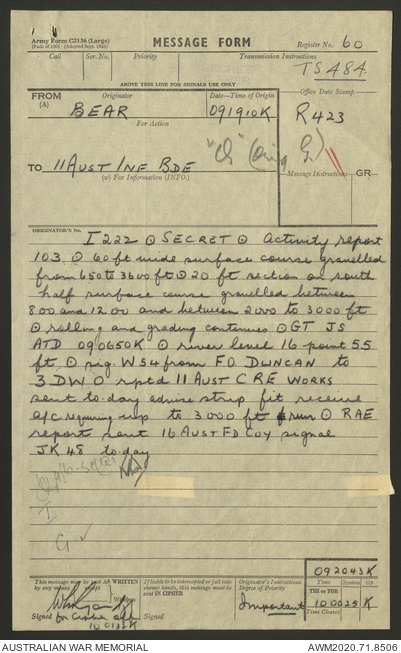 Army Form C2136 (Large)
(Pads of 100) (Adopted Sept. 1942)
MESSAGE FORM
Register No. 60
Call Ser. No. Priority Transmission Instructions
TS 484
ABOVE THIS LINE FOR SIGNALS USE ONLY
FROM (A) Originator Date—Time of Origin Office Date Stamp
BEAR 091910K R423
For Action
TO 11 AUST INF BDE
(w) For Information (INFO.)
Message Instructions GR
ORIGINATOR'S No.
I222 ⊙ SECRET ⊙ Activity report
103. ⊙ 60 ft wide surface course gravelled
from 650 to 3600 ft ⊙ 20 ft section on south
half surface course gravelled between
800 and 1200 and between 2000 to 3000 ft
⊙ rolling and grading continues ⊙ GT JS
ATD 090650K ⊙ river level 16 point 55
ft ⊙ sig. W54 from F.O. DUNCAN to
3 DW ⊙ rptd 11 AUST CRE WORKS
sent to-day advise strip fit receive
a/c requiring up to 3000 ft run ⊙ RAE
report sent 16 AUST FD COY signal
JK 48 to-day
I
G ✓
092043K
This message may be sent AS WRITTEN
by any means
If liable to be intercepted or fall into
enemy hands, this message must be
sent IN CIPHER
Originator's Instructions
Degree of Priority
Important
Time System Op
THI or TOR
100025K
Time Cleared
Signed
for Cipher off
Signed
AUSTRALIAN WAR MEMORIAL
AWM2020.71.8506